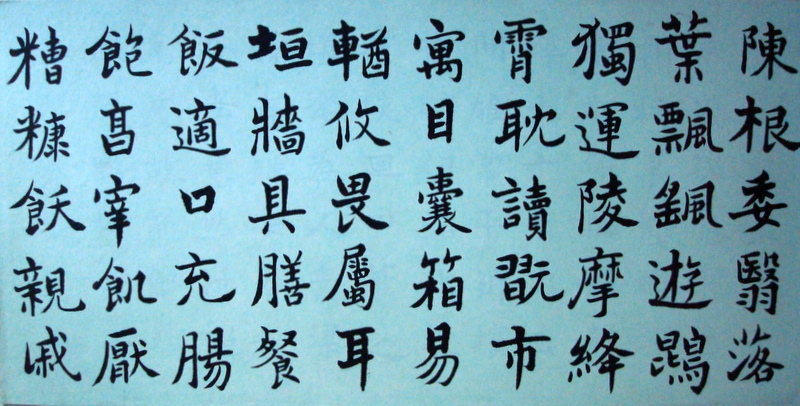 陳根委翳落
葉飄颻遊鵾
獨運陵摩絳
霄耽讀翫市
寓目囊箱易
輶攸畏屬耳
垣牆具膳餐
飯適口充腸
飽亯宰飢厭
糟糠飫親戚